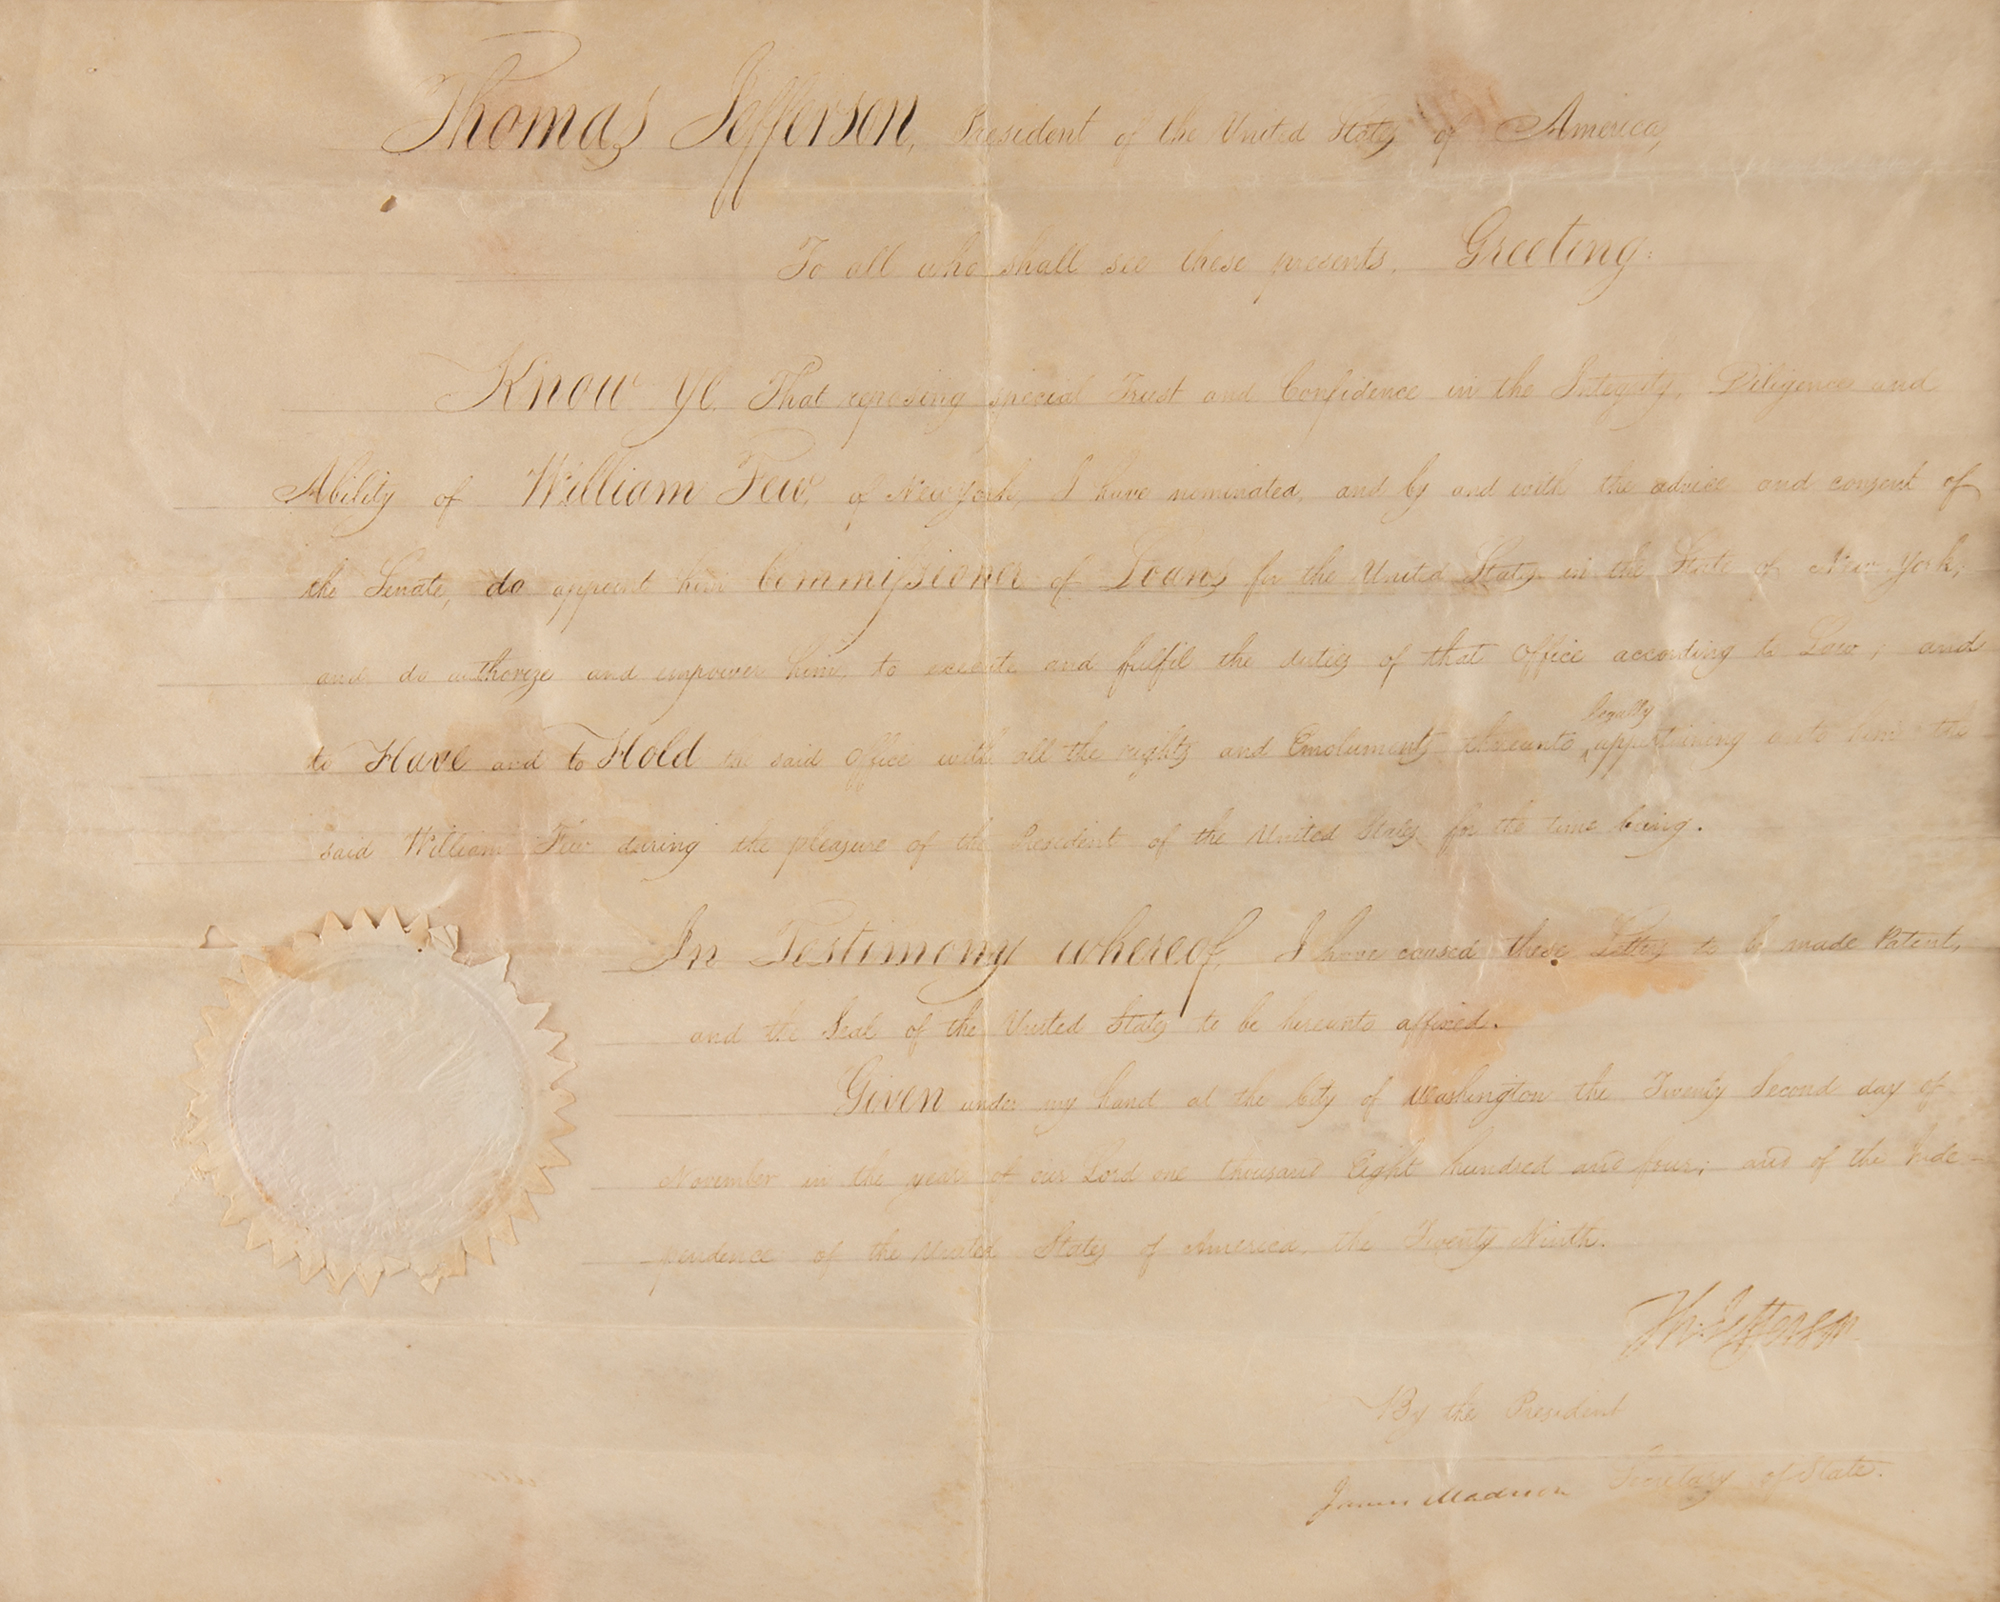 Thomas Jefferson, President of the United States of America,
To all who shall see these presents, Greeting:
Know Ye, That reposing special Trust and Confidence in the Integrity, Diligence and
Ability of William Few, of New York, I have nominated, and by and with the advice and consent of
the Senate, do appoint him Commissioner of Loans for the United States in the State of New York;
and do authorize and empower him to execute and fulfil the duties of that Office according to Law; and
legally
to Have and to Hold the said Office with all the rights and Emoluments thereunto appertaining unto him the
said William Few during the pleasure of the President of the United States for the time being.
In Testimony whereof, I have caused these Letters to be made Patent,
and the Seal of the United States to be hereunto affixed.
Given under my hand at the City of Washington the Twenty Second day of
November in the year of our Lord one thousand Eight hundred and four; and of the Inde-
pendence of the United States of America, the Twenty Ninth.
Th: Jefferson
By the President
James Madison Secretary of State.